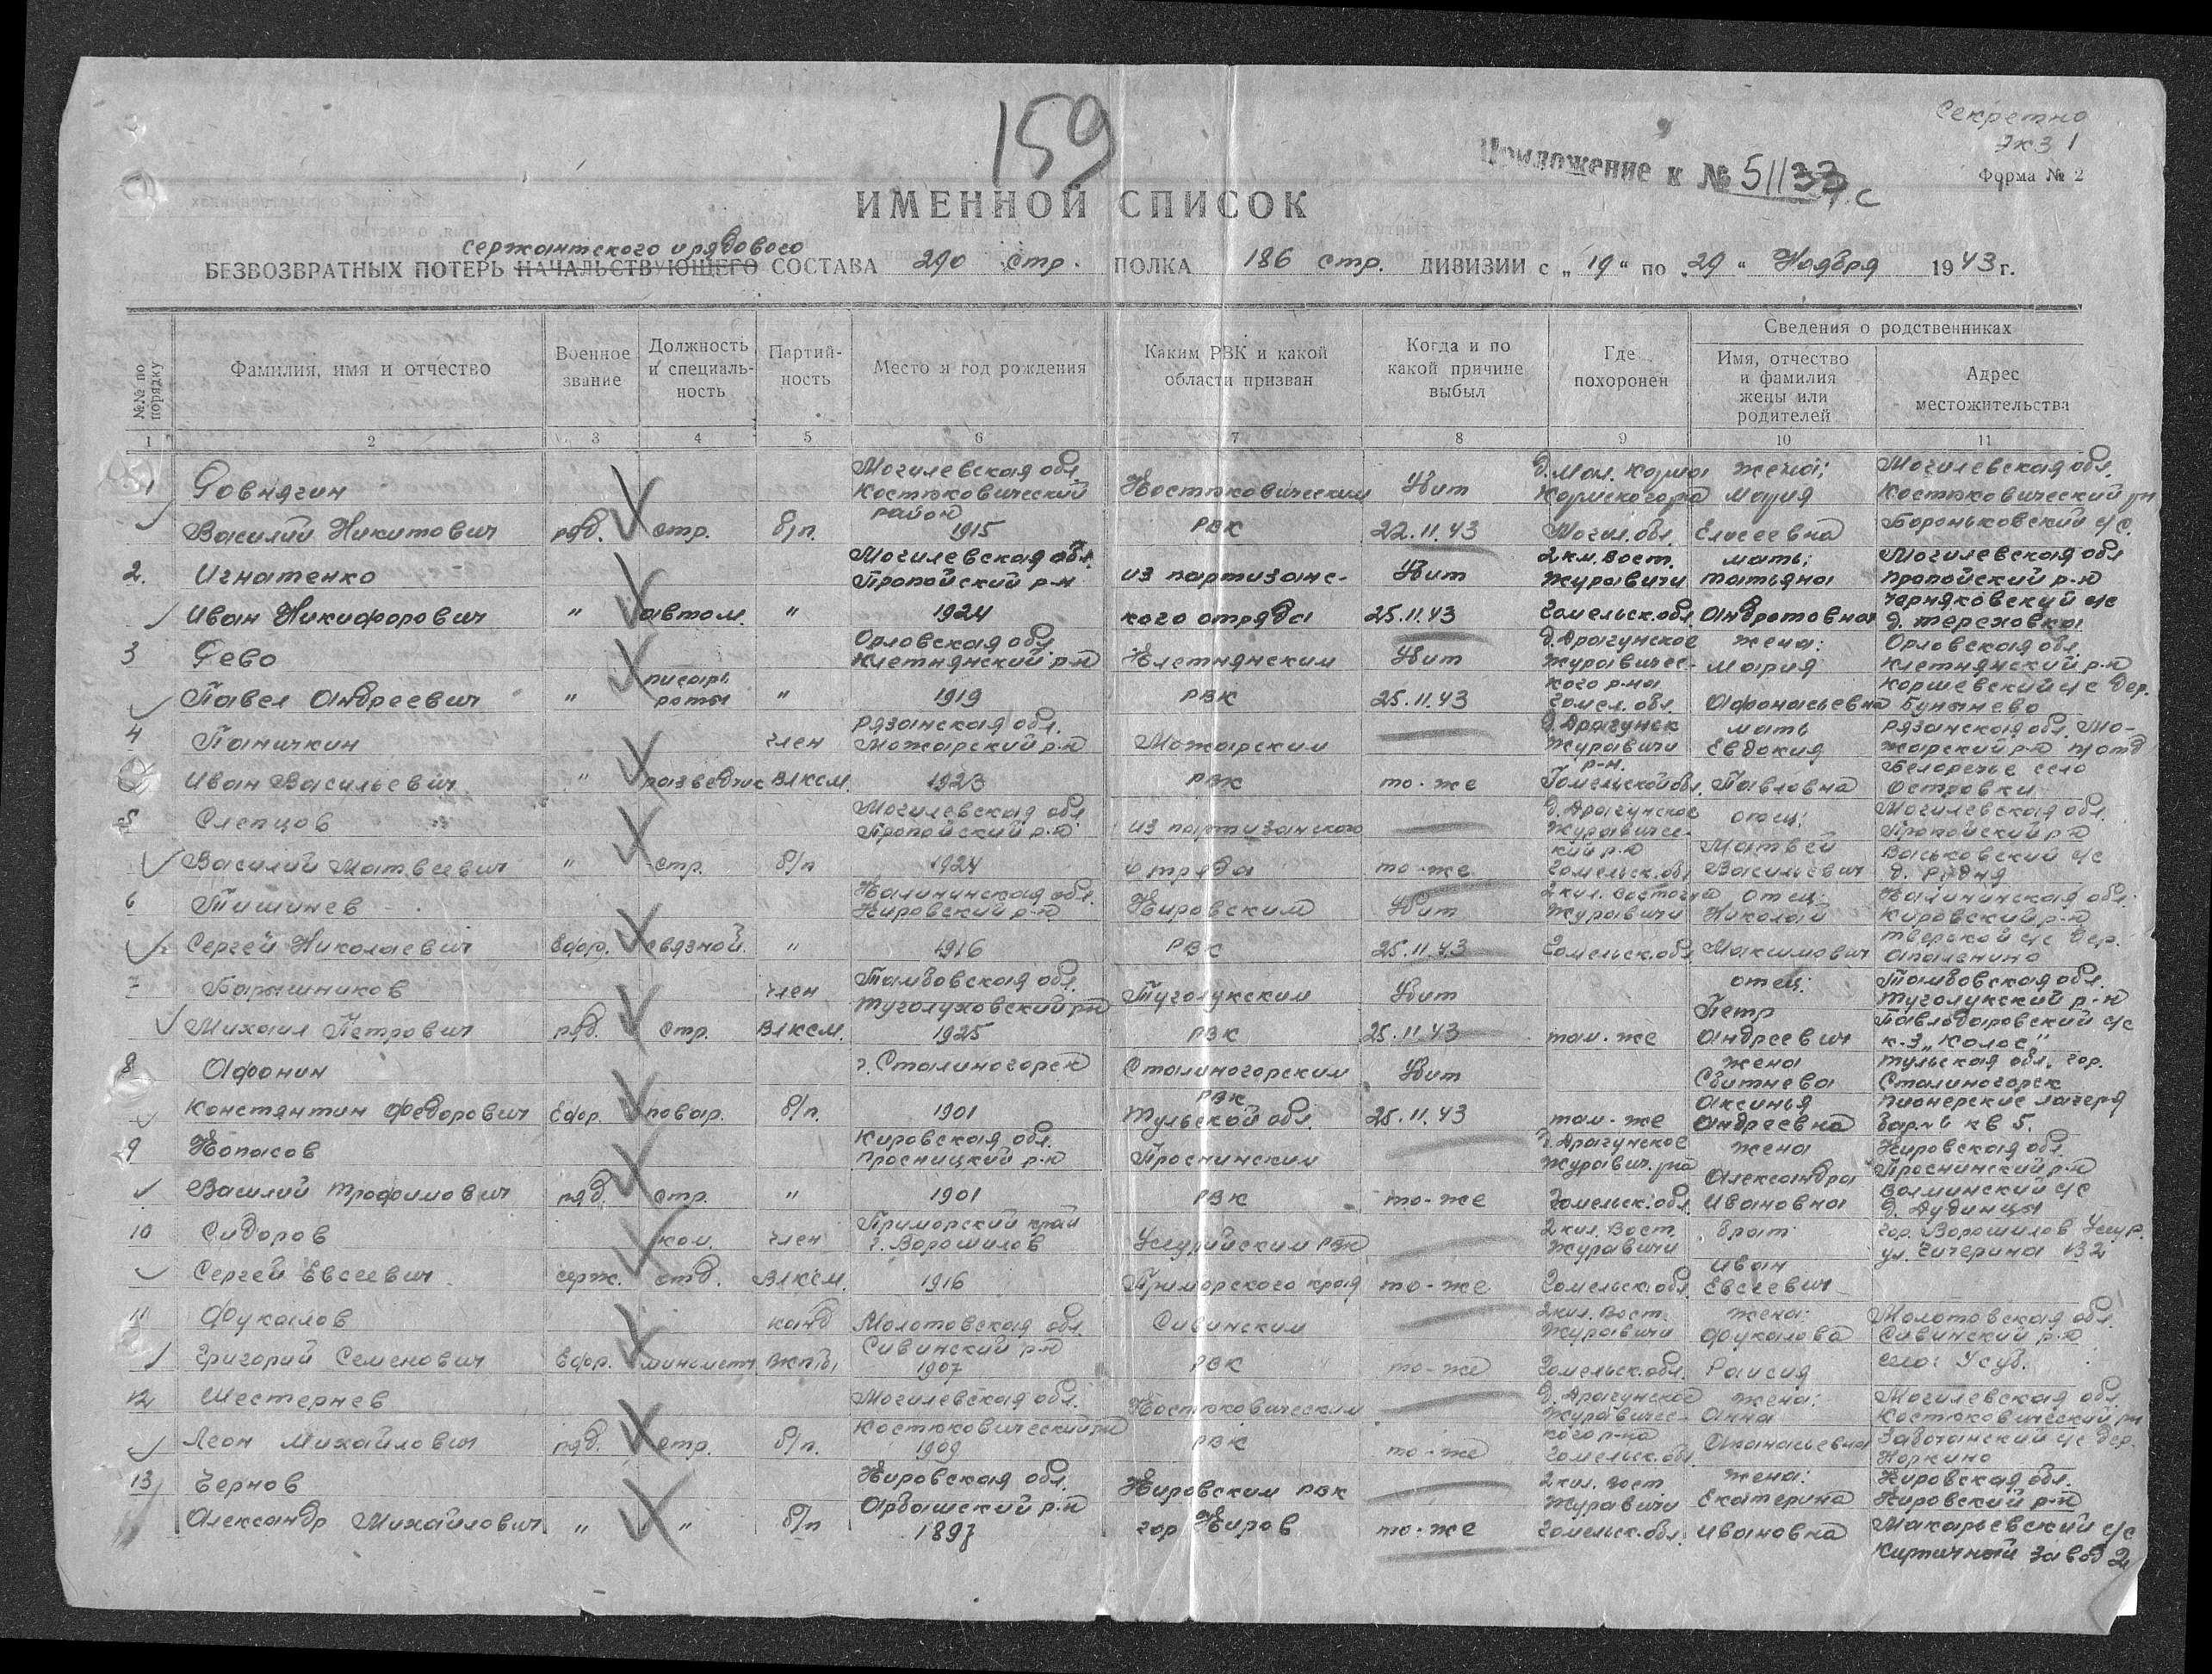 Секретно
Экз 1
159
Приложение к № 51133с
Форма № 2
ИМЕННОЙ СПИСОК
сержантского и рядового
БЕЗВОЗВРАТНЫХ ПОТЕРЬ НАЧАЛЬСТВУЮЩЕГО СОСТАВА 290 стр. ПОЛКА 186 стр. ДИВИЗИИ с „19“ по „29“ Ноября 1943 г.
№№ по порядку
Фамилия, имя и отчество
Военное звание
Должность и специаль-ность
Партий-ность
Место и год рождения
Каким РВК и какой области призван
Когда и по какой причине выбыл
Где похоронен
Сведения о родственниках
Имя, отчество и фамилия жены или родителей
Адрес местожительства
1 2 3 4 5 6 7 8 9 10 11
1 Ровнягин Могилевская обл. Костюковический район Костюковическим Убит д. Мал. Корма Кормского р-на жена: Мария Могилевская обл. Костюковический р-н
Василий Никитович ряд. стр. б/п. 1915 РВК 22.11.43 Могил. обл. Елисеевна Бороньковский с/с
2. Игнатенко Могилевская обл. Пропойский р-н из партизанс- Убит 2 км. вост. Журавичи мать: Татьяна Могилевская обл Пропойский р-н
Иван Никифорович " автом. " 1924 кого отряда 25.11.43 Гомельск. обл. Черняковский с/с д. Тереховка
3 Орловская обл. Клетнянский р-н Клетнянским Убит д. Драгунское Журавичес- жена: Мария Орловская обл. Клетнянский р-н
Павел Андреевич " писарь роты " 1919 РВК 25.11.43 кого р-на Гомел. обл. Афонасьевна Коршевский с/с дер.
4 Паничкин член Рязанская обл. Можарский р-н Можарским д. Драгунск Журавичи р-н. мать Евдокия Рязанская обл. Мо-жарский р-н
Иван Васильевич " разведчик ВЛКСМ. 1923 РВК то-же Гомельской обл. Павловна Белоречье село Островки
5 Слепцов Могилевская обл Пропойский р-н из партизанского д. Драгунское Журавичес- отец: Могилевская обл. Пропойский р-н
Василий Матвеевич " стр. б/п 1924 отряда то-же кий р-н Гомельск. обл Матвей Васильевич Васьковский с/с д. Рудня
6 Тишинев Калининская обл. Кировский р-н Кировским Убит 2 кил. восточн Журавичи отец: Николай Калининская обл. Кировский р-н
Сергей Николаевич Ефр. связной. " 1916 РВК 25.11.43 Гомельск. обл. Максимович Тверской с/с дер. Апаленино
7 Барышников член Тамбовская обл. Туголуковский р-н Туголукским Убит отец: Петр Тамбовская обл. Туголукский р-н
Михаил Петрович ряд. стр. ВЛКСМ. 1925 РВК 25.11.43 там-же Андреевич Павлодаровский с/с к-з „Колос“
8 Афонин г. Сталиногорск Сталиногорским Убит жена Сбитнева Тульская обл. гор. Сталиногорск
Константин Федорович Ефр. повар. б/п. 1901 РВК Тульской обл. 25.11.43 там-же Аксинья Андреевна Пионерские лагеря кв 5.
9 Копасов Кировская обл. Просницкий р-н Проснинским д. Драгунское Журавич. р-на жена Кировская обл. Проснинский р-н
Василий Трофимович ряд. стр. " 1901 РВК то-же Гомельск. обл. Александра Ивановна с/с д. Дудинцы
10 Сидоров ком. член Приморский край г. Ворошилов Уссурийским РВК 2 кил. вост. Журавичи брат гор. Ворошилов Уссур. ул. Чичерина 132
Сергей Евсеевич серж. отд. ВЛКСМ 1916 Приморского края то-же Гомельск. обл. Иван Евсеевич
11 Фукалов канд Молотовская обл. Сивинский р-н Сивинским 2 кил. вост. Журавичи жена: Фукалова Молотовская обл. Сивинский р-н
Григорий Семенович Ефр. минометч ВКП(б) 1907 РВК то-же Гомельск. обл. Раисия село:
12 Шестернев Могилевская обл. Костюковический р-н Костюковическим д. Драгунское Журавичес- жена: Анна Могилевская обл. Костюковический р-н
Леон Михайлович ряд. стр. б/п. 1909 РВК то-же кого р-на Гомельск. обл. Афанасьевна Забочанский с/с дер. Норкино
13 Чернов Кировская обл. Арбашский р-н Кировским РВК 2 кил. вост Журавичи жена: Екатерина Кировская обл. Кировский р-н
Александр Михайлович " " б/п 1897 гор Киров то-же Гомельск. обл. Ивановна Макарьевский с/с
Кирпичный завод 2